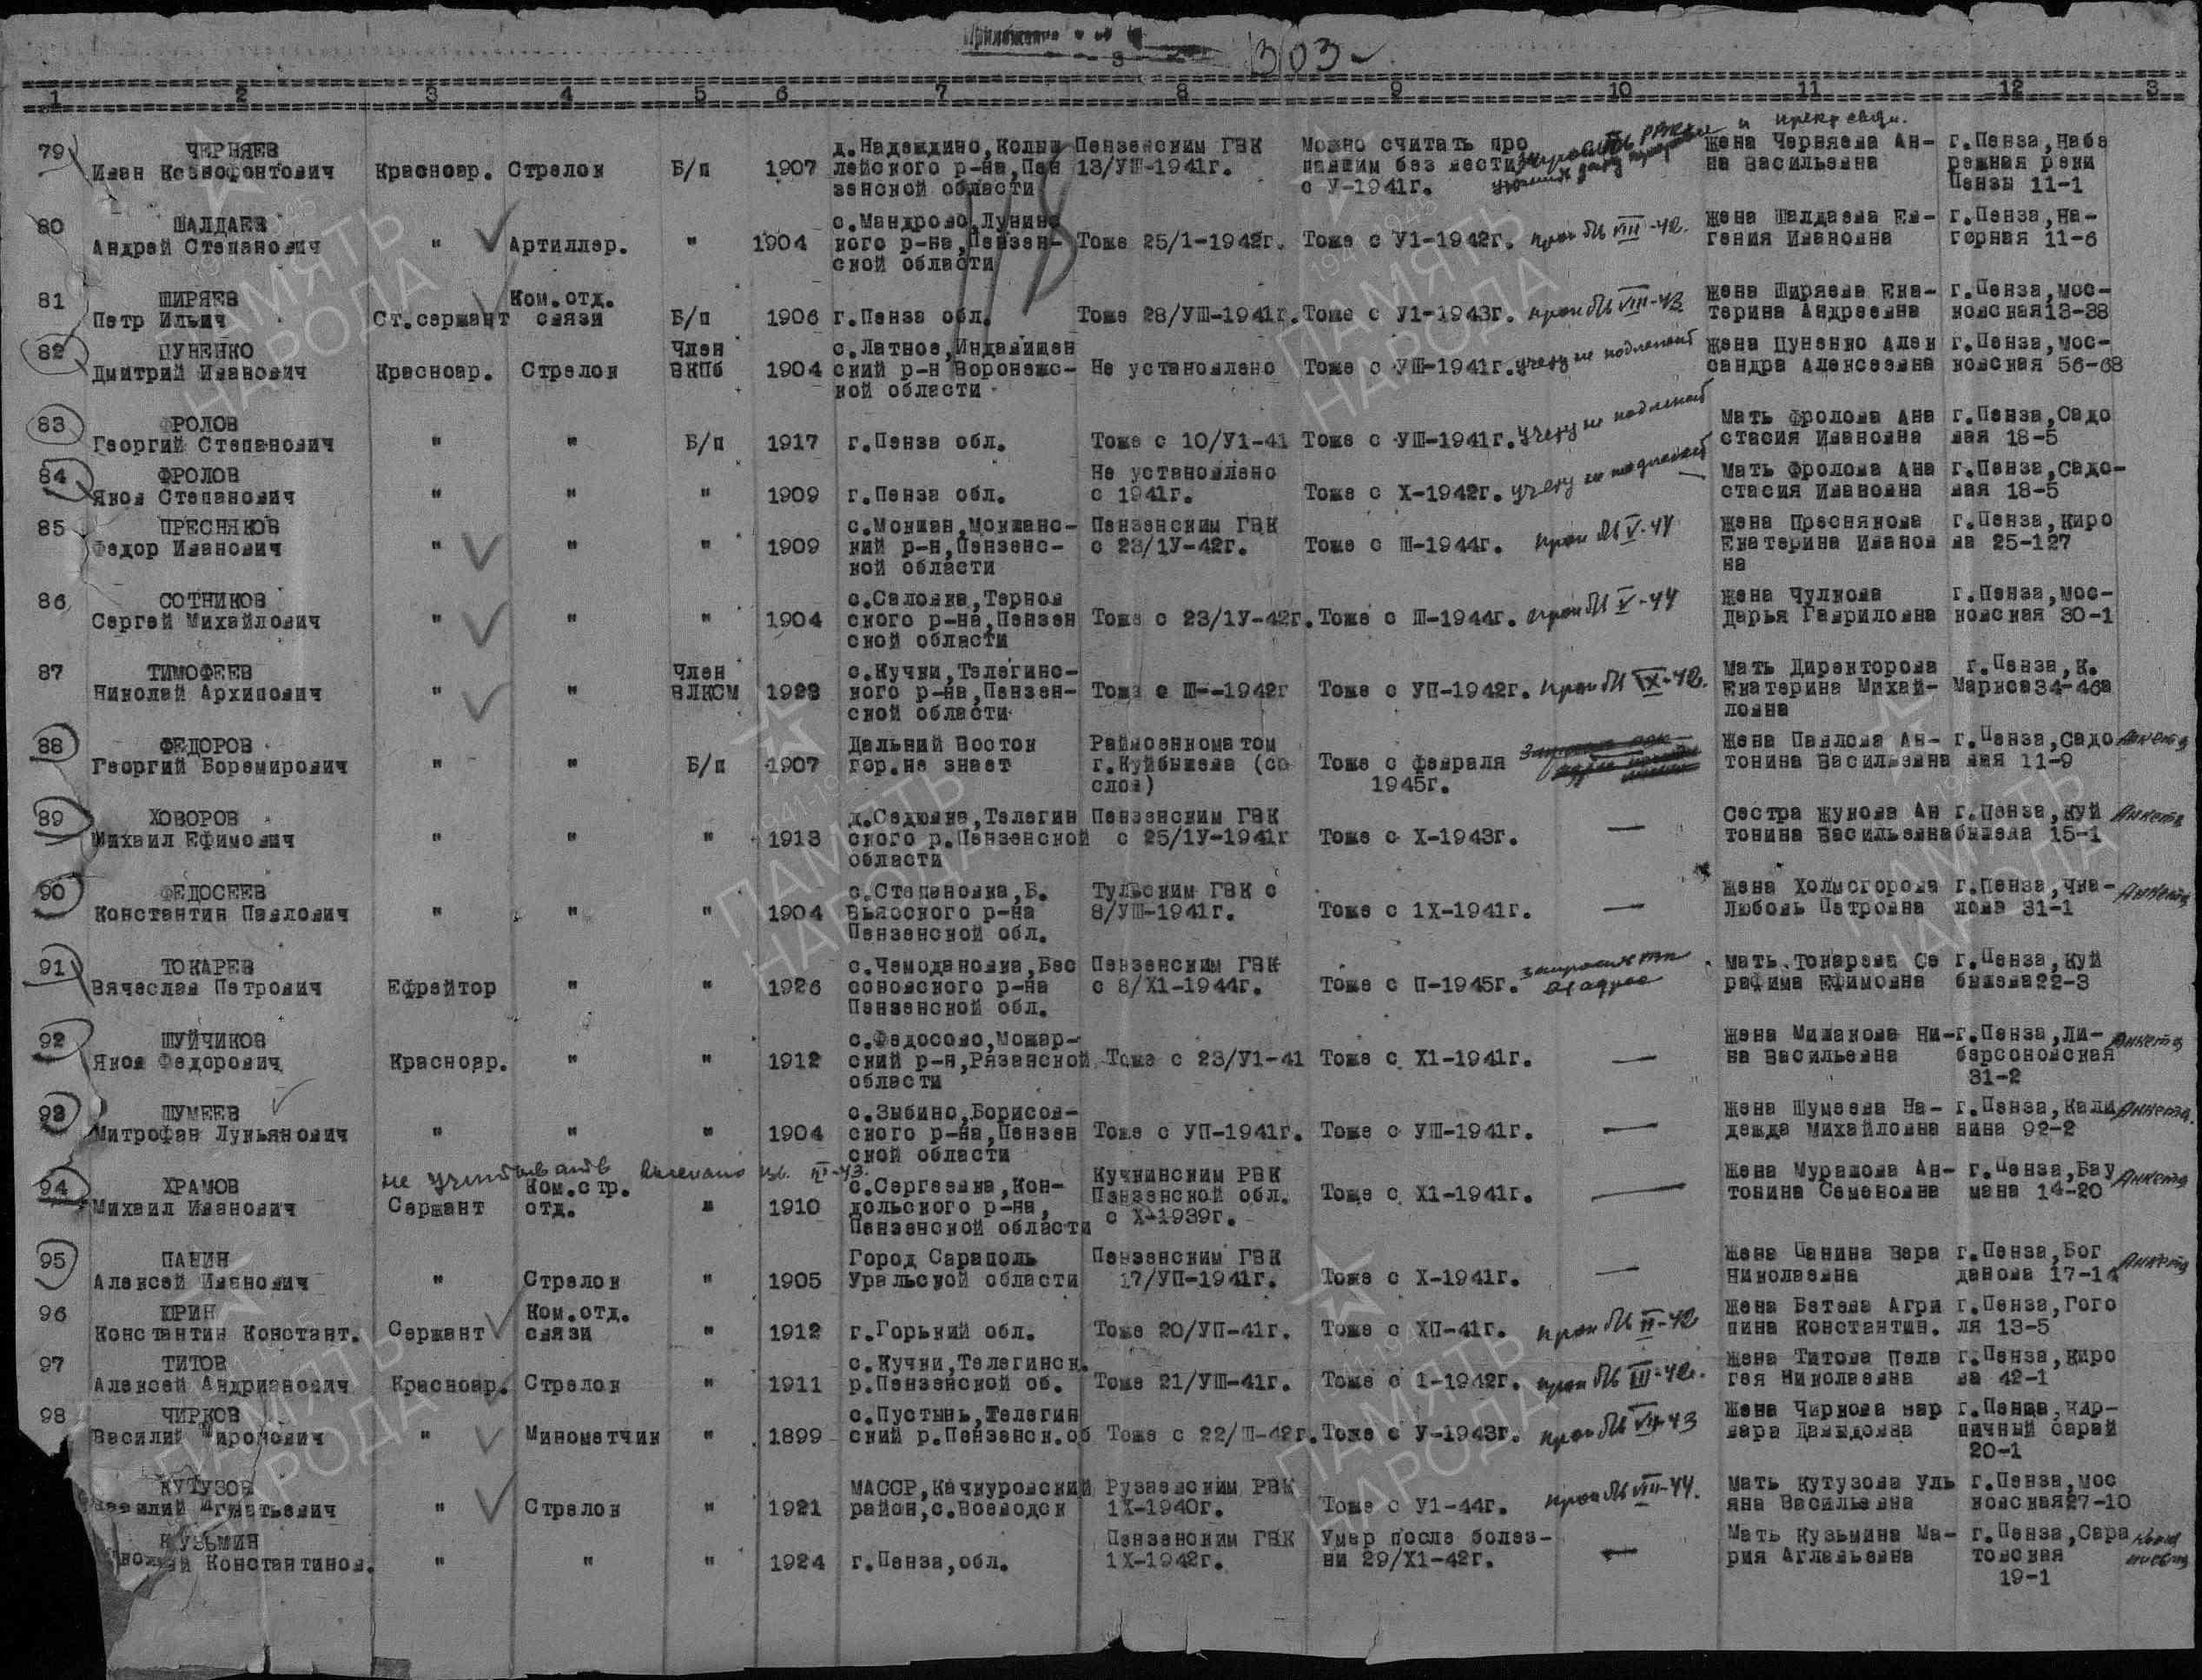 303
1 2 3 4 5 6 7 8 9 10 11 12 3
79 ЧЕРНЯЕВ
Иван Ксенофонтович Красноар. Стрелок Б/п 1907 д.Надеждино,Колыш
лейского р-на,Пен
зенской области Пензенским ГВК
13/УШ-1941г. Можно считать про
павшим без вести
с У-1941г. Жена Черняева Ан-
на Васильевна г.Пенза,Набе
режная реки
Пензы 11-1
80 ШАЛДАЕВ
Андрей Степанович " Артиллер. " 1904 с.Мандрово,Лунинс
кого р-на,Пензен-
ской области Тоже 25/1-1942г. Тоже с У1-1942г. проп б/и VIII-42. Жена Шалдаева Ев-
гения Ивановна г.Пенза,На-
горная 11-6
81 ШИРЯЕВ
Петр Ильич Ст.сержант Ком.отд.
связи Б/п 1906 г.Пенза обл. Тоже 28/УШ-1941г. Тоже с У1-1943г. проп б/и VIII-43 Жена Ширяева Ека-
терина Андреевна г.Пенза,Мос-
ковская13-38
82 ПУНЕНКО
Дмитрий Иванович Красноар. Стрелок Член
ВКПб 1904 с.Латное,Индавищен
ский р-н Воронежс-
кой области Не установлено Тоже с УШ-1941г. учету не подлежит Жена Пуненко Алек
сандра Алексеевна г.Пенза,Мос-
ковская 56-68
83 ФРОЛОВ
Георгий Степанович " " Б/п 1917 г.Пенза обл. Тоже с 10/У1-41 Тоже с УШ-1941г. учету не подлежит Мать Фролова Ана
стасия Ивановна г.Пенза,Садо
вая 18-5
84 ФРОЛОВ
Яков Степанович " " " 1909 г.Пенза обл. Не установлено
с 1941г. Тоже с Х-1942г. учету не подлежит Мать Фролова Ана
стасия Ивановна г.Пенза,Садо-
вая 18-5
85 ПРЕСНЯКОВ
Федор Иванович " " " 1909 с.Мокшан,Мокшанс-
кий р-н,Пензенс-
кой области Пензенским ГВК
с 23/1У-42г. Тоже с Ш-1944г. проп б/и V-44 Жена Преснякова
Екатерина Иванов
на г.Пенза,Киро
ва 25-127
86 СОТНИКОВ
Сергей Михайлович " " " 1904 с.Саловка,Тернов
ского р-на,Пензен
ской области Тоже с 23/1У-42г. Тоже с Ш-1944г. проп б/и V-44 Жена Чулкова
Дарья Гавриловна г.Пенза,Мос-
ковская 30-1
87 ТИМОФЕЕВ
Николай Архипович " " Член
ВЛКСМ 1923 с.Кучки,Телегинс-
кого р-на,Пензен-
ской области Тоже с Ш--1942г Тоже с УП-1942г. проп б/и IX-42. Мать Директорова
Екатерина Михай-
ловна г.Пенза,К.
Маркса34-46а
88 ФЕДОРОВ
Георгий Боремирович " " Б/п 1907 Дальний Восток
гор.не знает Райвоенкоматом
г.Куйбышева (со
слов) Тоже с февраля
1945г. Жена Павлова Ан-
тонина Васильевна г.Пенза,Садо
вая 11-9 Анкета
89 ХОВОРОВ
Михаил Ефимович " " " 1913 д.Седювка,Телегин
ского р.Пензенской
области Пензенским ГВК
с 25/1У-1941г Тоже с Х-1943г. — Сестра Жукова Ан
тонина Васильевна г.Пенза,Куй
бышева 15-1 Анкета
90 ФЕДОСЕЕВ
Константин Павлович " " " 1904 с.Степановка,Б.
Вьясского р-на
Пензенской обл. Тульским ГВК с
8/УШ-1941г. Тоже с 1Х-1941г. — Жена Холмогорова
Любовь Петровна г.Пенза,Чка-
лова 31-1 Анкета
91 ТОКАРЕВ
Вячеслав Петрович Ефрейтор " " 1926 с.Чемодановка,Бес
соновского р-на
Пензенской обл. Пензенским ГВК
с 8/Х1-1944г. Тоже с П-1945г. Мать Токарева Се
рафима Ефимовна г.Пенза,Куй
бышева22-3
92 ШУЙЧИКОВ
Яков Федорович Красноар. " " 1912 с.Федосово,Можар-
ский р-н,Рязанской
области Тоже с 23/У1-41 Тоже с Х1-1941г. — Жена Мишакова Ни-
на Васильевна г.Пенза,Ли-
берсоновская
31-2 Анкета
93 ШУМЕЕВ
Митрофан Лукьянович " " " 1904 с.Зыбино,Борисов-
ского р-на,Пензен
ской области Тоже с УП-1941г. Тоже с УШ-1941г. — Жена Шумеева На-
дежда Михайловна г.Пенза,Кали
нина 92-2 Анкета
не учитывать
94 ХРАМОВ
Михаил Иванович Сержант Ком.стр.
отд. " 1910 с.Сергеевка,Кон-
дольского р-на,
Пензенской области Кучкинским РВК
Пензенской обл.
с Х-1939г. Тоже с Х1-1941г. — Жена Мурашова Ан-
тонина Семеновна г.Пенза,Бау
мана 14-20 Анкета
95 ПАНИН
Алексей Иванович " Стрелок " 1905 Город Сарапуль
Уральской области Пензенским ГВК
17/УП-1941г. Тоже с Х-1941г. — Жена Панина Вера
Николаевна г.Пенза,Бог
данова 17-14 Анкета
96 ЮРИН
Константин Констант. Сержант Ком.отд.
связи " 1912 г.Горький обл. Тоже 20/УП-41г. Тоже с ХП-41г. проп б/и II-42 Жена Батева Агри
пина Константин. г.Пенза,Гого
ля 13-5
97 ТИТОВ
Алексей Андрианович Красноар. Стрелок " 1911 с.Кучки,Телегинск.
р.Пензенской об. Тоже 21/УШ-41г. Тоже с 1-1942г. проп б/и III-42г. Жена Титова Пела
гея Николаевна г.Пенза,Киро
ва 42-1
98 ЧИРКОВ
Василий Миронович " Минометчик " 1899 с.Пустынь,Телегин
ский р.Пензенск.об Тоже с 22/Ш-42г. Тоже с У-1943г. проп б/и VII-43 Жена Чиркова Вар
вара Давыдовна г.Пенза,Кир-
пичный сарай
20-1
КУТУЗОВ
Василий Игнатьевич " Стрелок " 1921 МАССР,Качкуровский
район,с.Воеводск Рузаевским РВК
1Х-1940г. Тоже с У1-44г. проп б/и VIII-44. Мать Кутузова Уль
яна Васильевна г.Пенза,Мос
ковская27-10
КУЗЬМИН
Константинов. " " " 1924 г.Пенза,обл. Пензенским ГВК
1Х-1942г. Умер после болез-
ни 29/Х1-42г. — Мать Кузьмина Ма-
рия Аглавьевна г.Пенза,Сара
товская
19-1